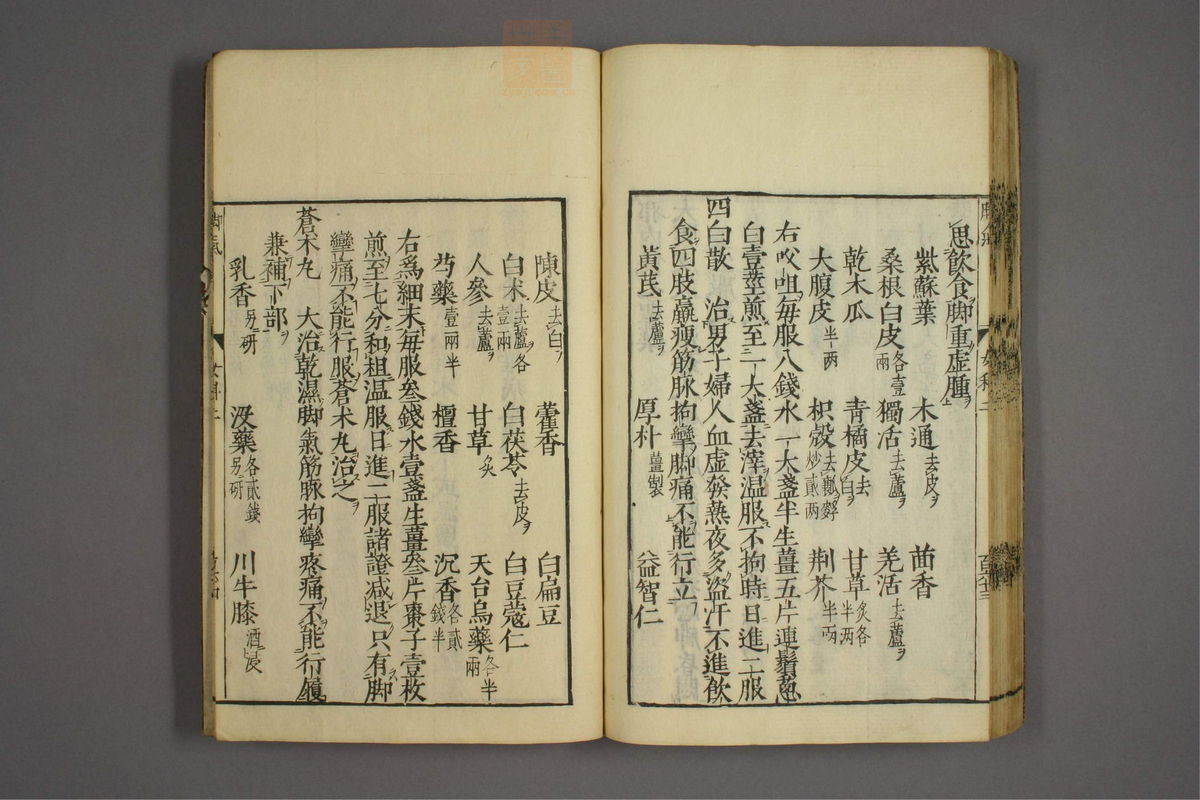 思飲食脚重虛腫
紫蘇葉 木通去皮 茴香
桑根白皮各壹兩 獨活去蘆 羌活去蘆
乾木瓜 青橘皮去白 甘草炙各半两
大腹皮半两 枳殼去瓤麩炒貳两 荆芥半两
右㕮咀每服八錢水一大盞半生薑五片連鬚葱
白壹莖煎至一大盞去滓温服不拘時日進二服
四白散 治男子婦人血虛發熱夜多盜汗不進飲
食四肢羸瘦筋脉拘攣脚痛不能行立
黃芪去蘆 厚朴薑製 益智仁
陳皮去白 藿香 白扁豆
白术去蘆各壹兩 白茯苓去皮 白豆蔻仁
人參去蘆 甘草炙 天台烏藥各半兩
芍藥壹兩半 檀香 沉香各貳錢半
右爲細末每服叁錢水壹盞生薑叁片棗子壹枚
煎至七分和柤温服日進二服諸證减退只有脚
攣痛不能行服蒼术丸治之
蒼术丸 大治乾濕脚氣筋脉拘攣疼痛不能行履
兼補下部
乳香另研 沒藥各貳錢另研 川牛膝酒浸
女科二